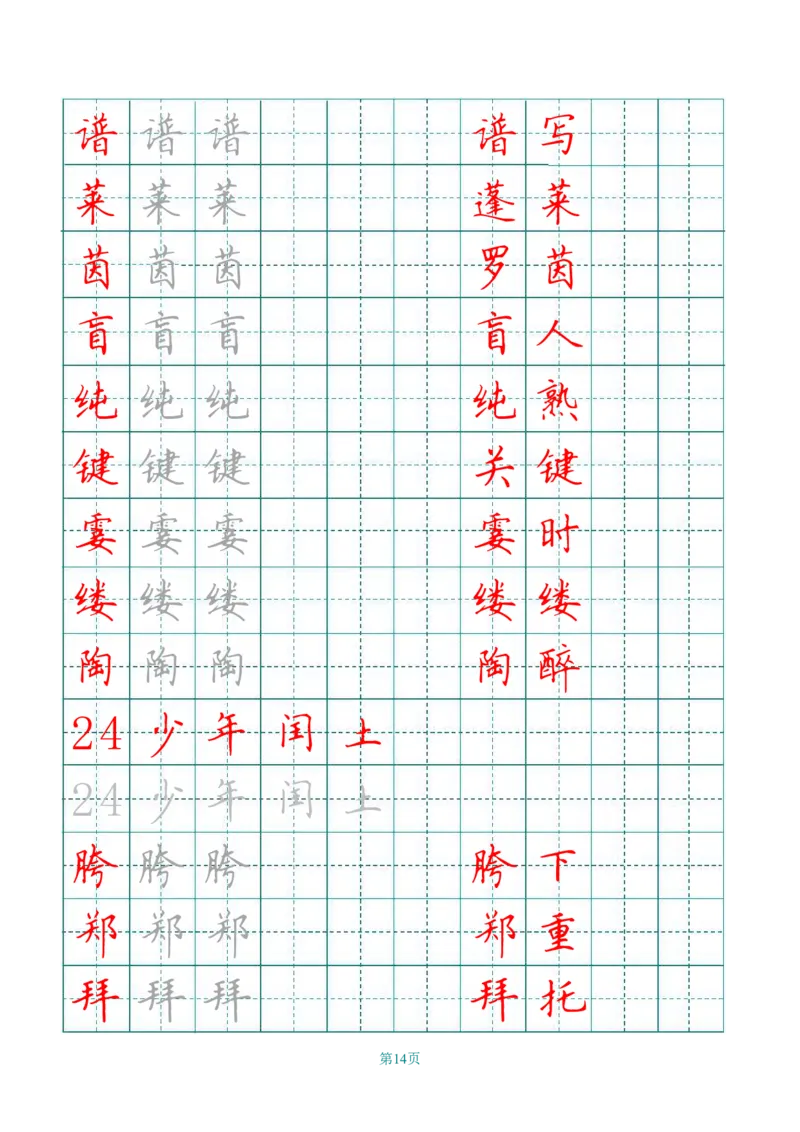 谱 谱 谱 谱 写
莱 莱 莱 蓬 莱
茵 茵 茵 罗 茵
盲 盲 盲 盲 人
纯 纯 纯 纯 熟
键 键 键 关 键
霎 霎 霎 霎 时
缕 缕 缕 缕 缕
陶 陶 陶 陶 醉
24 少 年 闰 土
24 少 年 闰 土
胯 胯 胯 胯 下
郑 郑 郑 郑 重
拜 拜 拜 拜 托
第14页